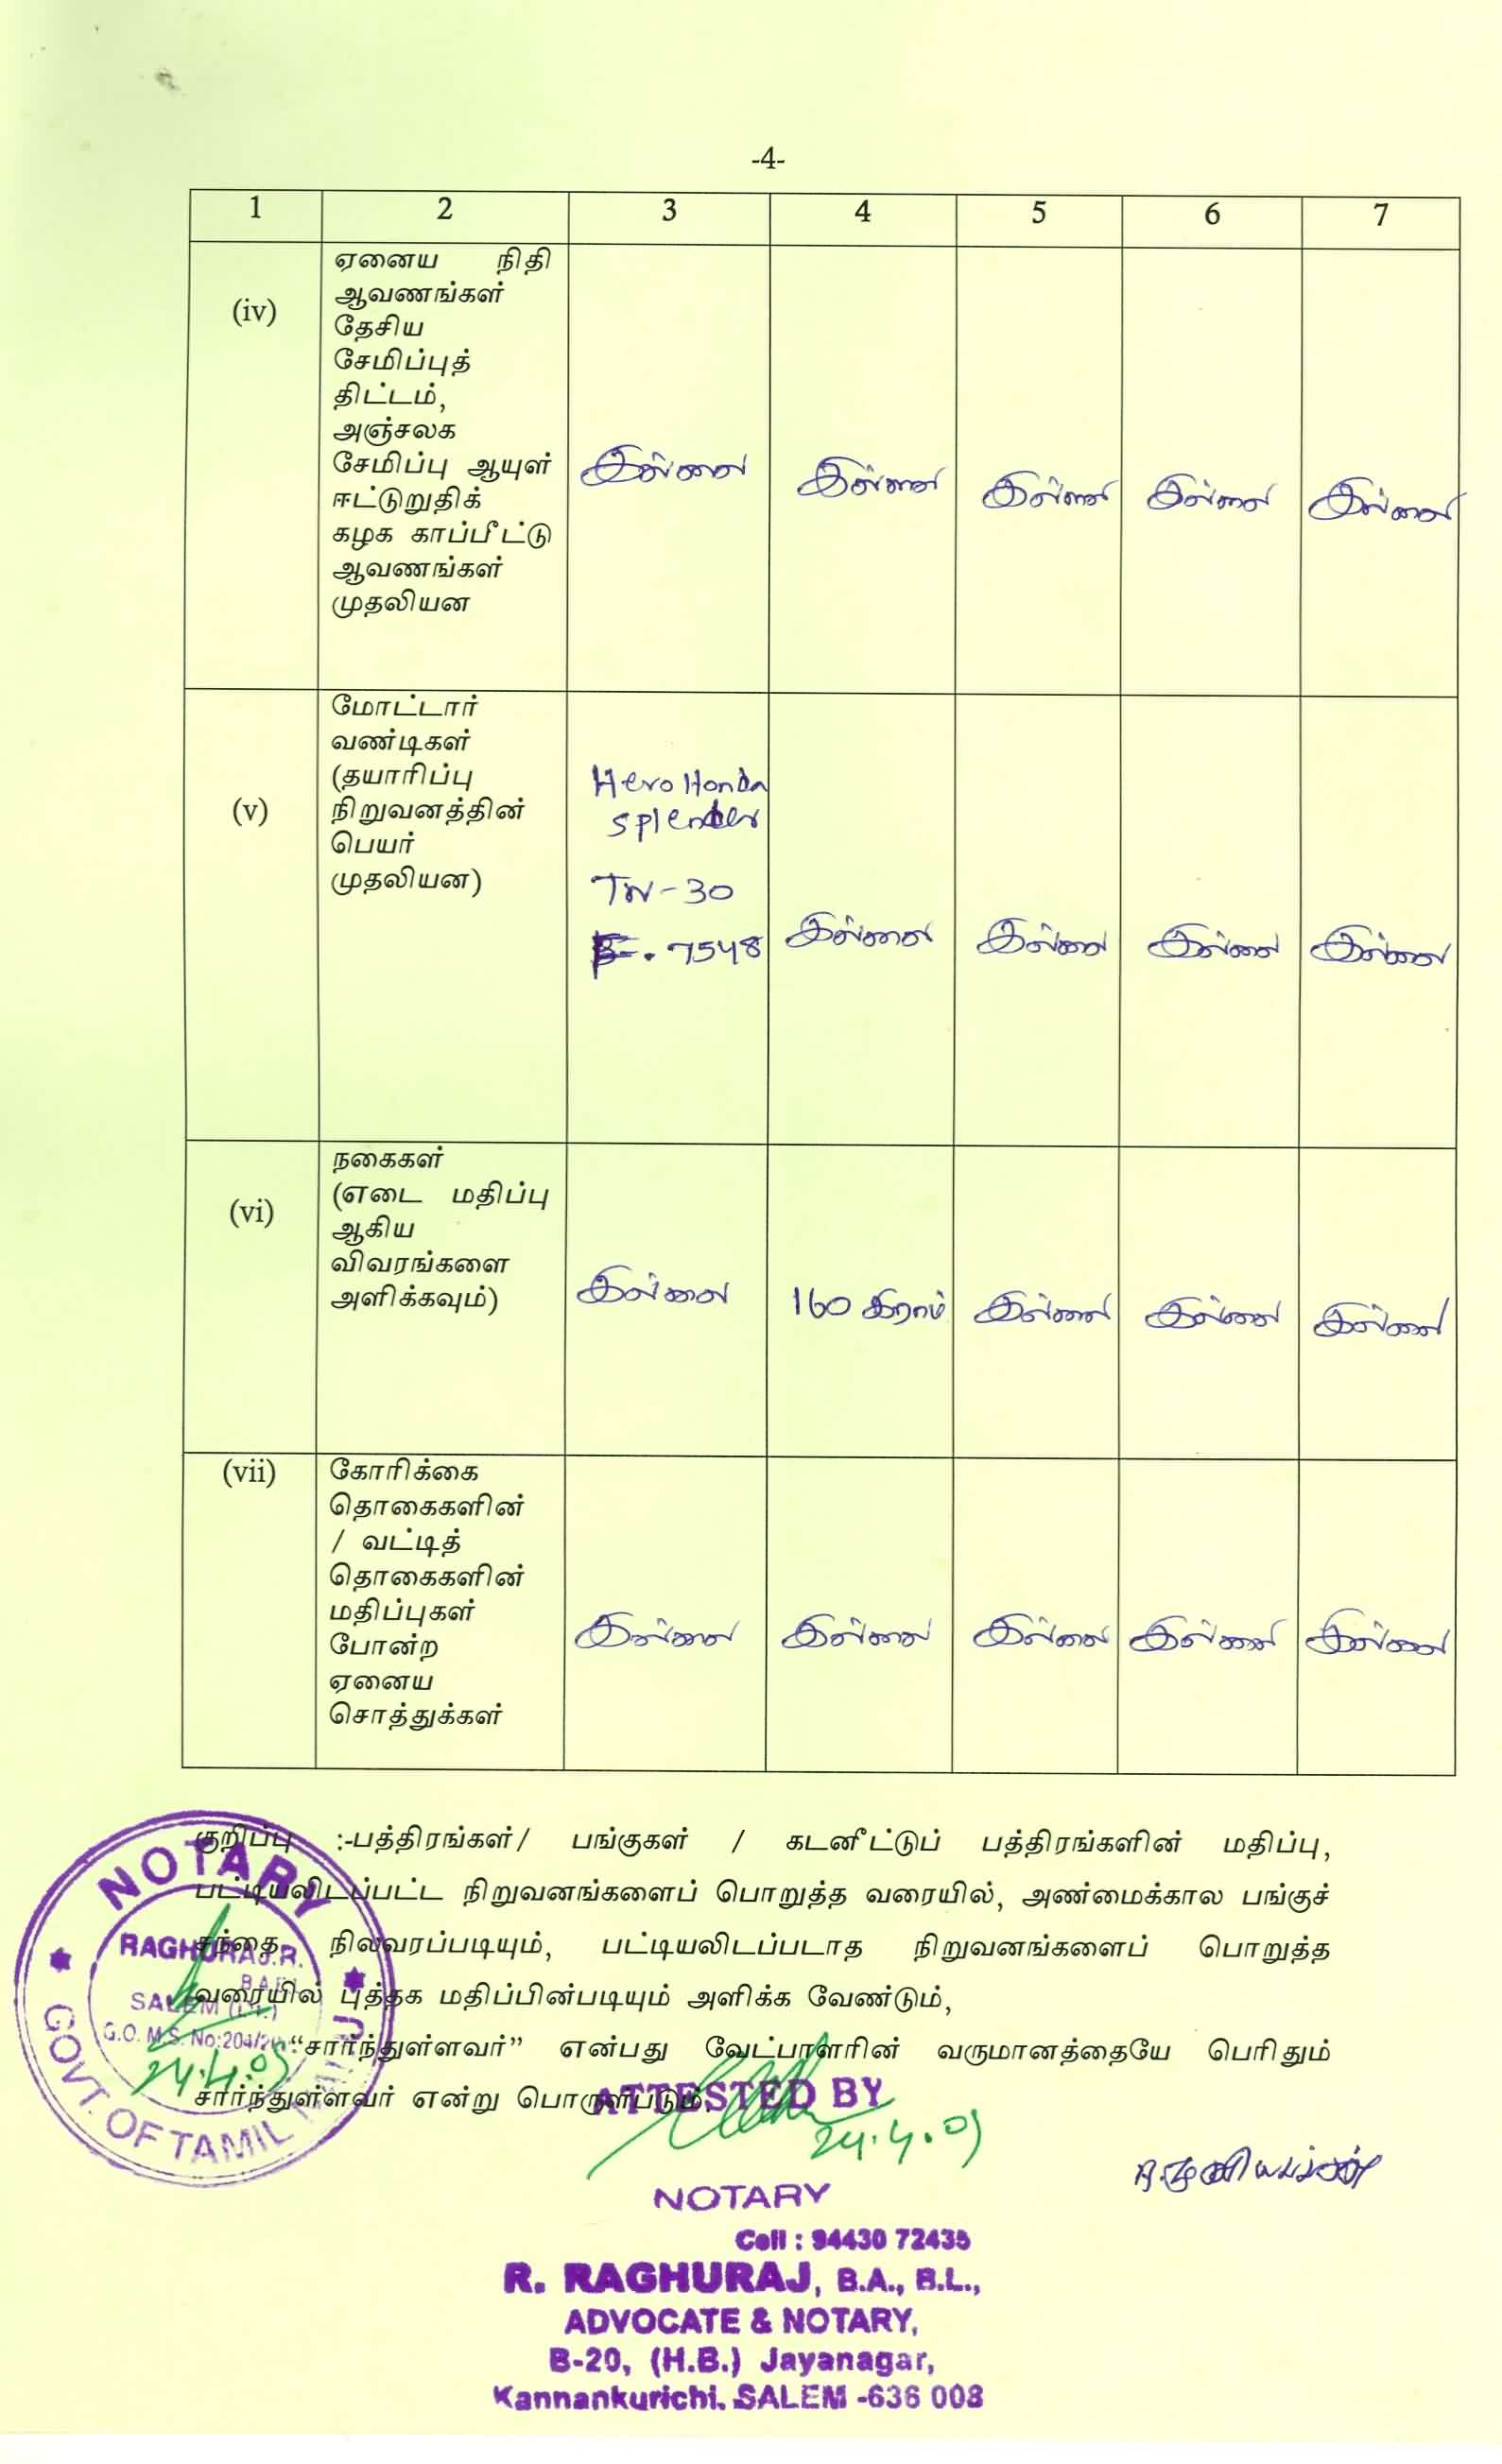 -4-
1 2 3 4 5 6 7
(iv)
ஏனைய நிதி
ஆவணங்கள்
தேசிய
சேமிப்புத்
திட்டம்,
அஞ்சலக
சேமிப்பு ஆயுள்
ஈட்டுறுதிக்
கழக காப்பீட்டு
ஆவணங்கள்
முதலியன
இல்லை இல்லை இல்லை இல்லை இல்லை
(v)
மோட்டார்
வண்டிகள்
(தயாரிப்பு
நிறுவனத்தின்
பெயர்
முதலியன)
Hero Honda
Splender
TN-30
7548
இல்லை இல்லை இல்லை இல்லை
(vi)
நகைகள்
(எடை மதிப்பு
ஆகிய
விவரங்களை
அளிக்கவும்)
இல்லை 160 கிராம் இல்லை இல்லை இல்லை
(vii)
கோரிக்கை
தொகைகளின்
/ வட்டித்
தொகைகளின்
மதிப்புகள்
போன்ற
ஏனைய
சொத்துக்கள்
இல்லை இல்லை இல்லை இல்லை இல்லை
குறிப்பு :-பத்திரங்கள்/ பங்குகள் / கடனீட்டுப் பத்திரங்களின் மதிப்பு,
பட்டியலிடப்பட்ட நிறுவனங்களைப் பொறுத்த வரையில், அண்மைக்கால பங்குச்
சந்தை நிலவரப்படியும், பட்டியலிடப்படாத நிறுவனங்களைப் பொறுத்த
வரையில் புத்தக மதிப்பின்படியும் அளிக்க வேண்டும்,
“சார்ந்துள்ளவர்” என்பது வேட்பாளரின் வருமானத்தையே பெரிதும்
சார்ந்துள்ளவர் என்று பொருள்படும்.
NOTARY
RAGHURAJ.R.
SALEM
G.O. M.S. No:204/
GOVT. OF TAMIL
24.4.09
ATTESTED BY
24.4.09
NOTARY
Cell : 94430 72435
R. RAGHURAJ, B.A., B.L.,
ADVOCATE & NOTARY,
B-20, (H.B.) Jayanagar,
Kannankurichi, SALEM -636 008